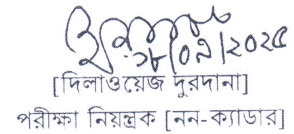 ২৮/০৯/২০২৫
[দিলাওয়েজ দুরদানা]
পরীক্ষা নিয়ন্ত্রক [নন-ক্যাডার]